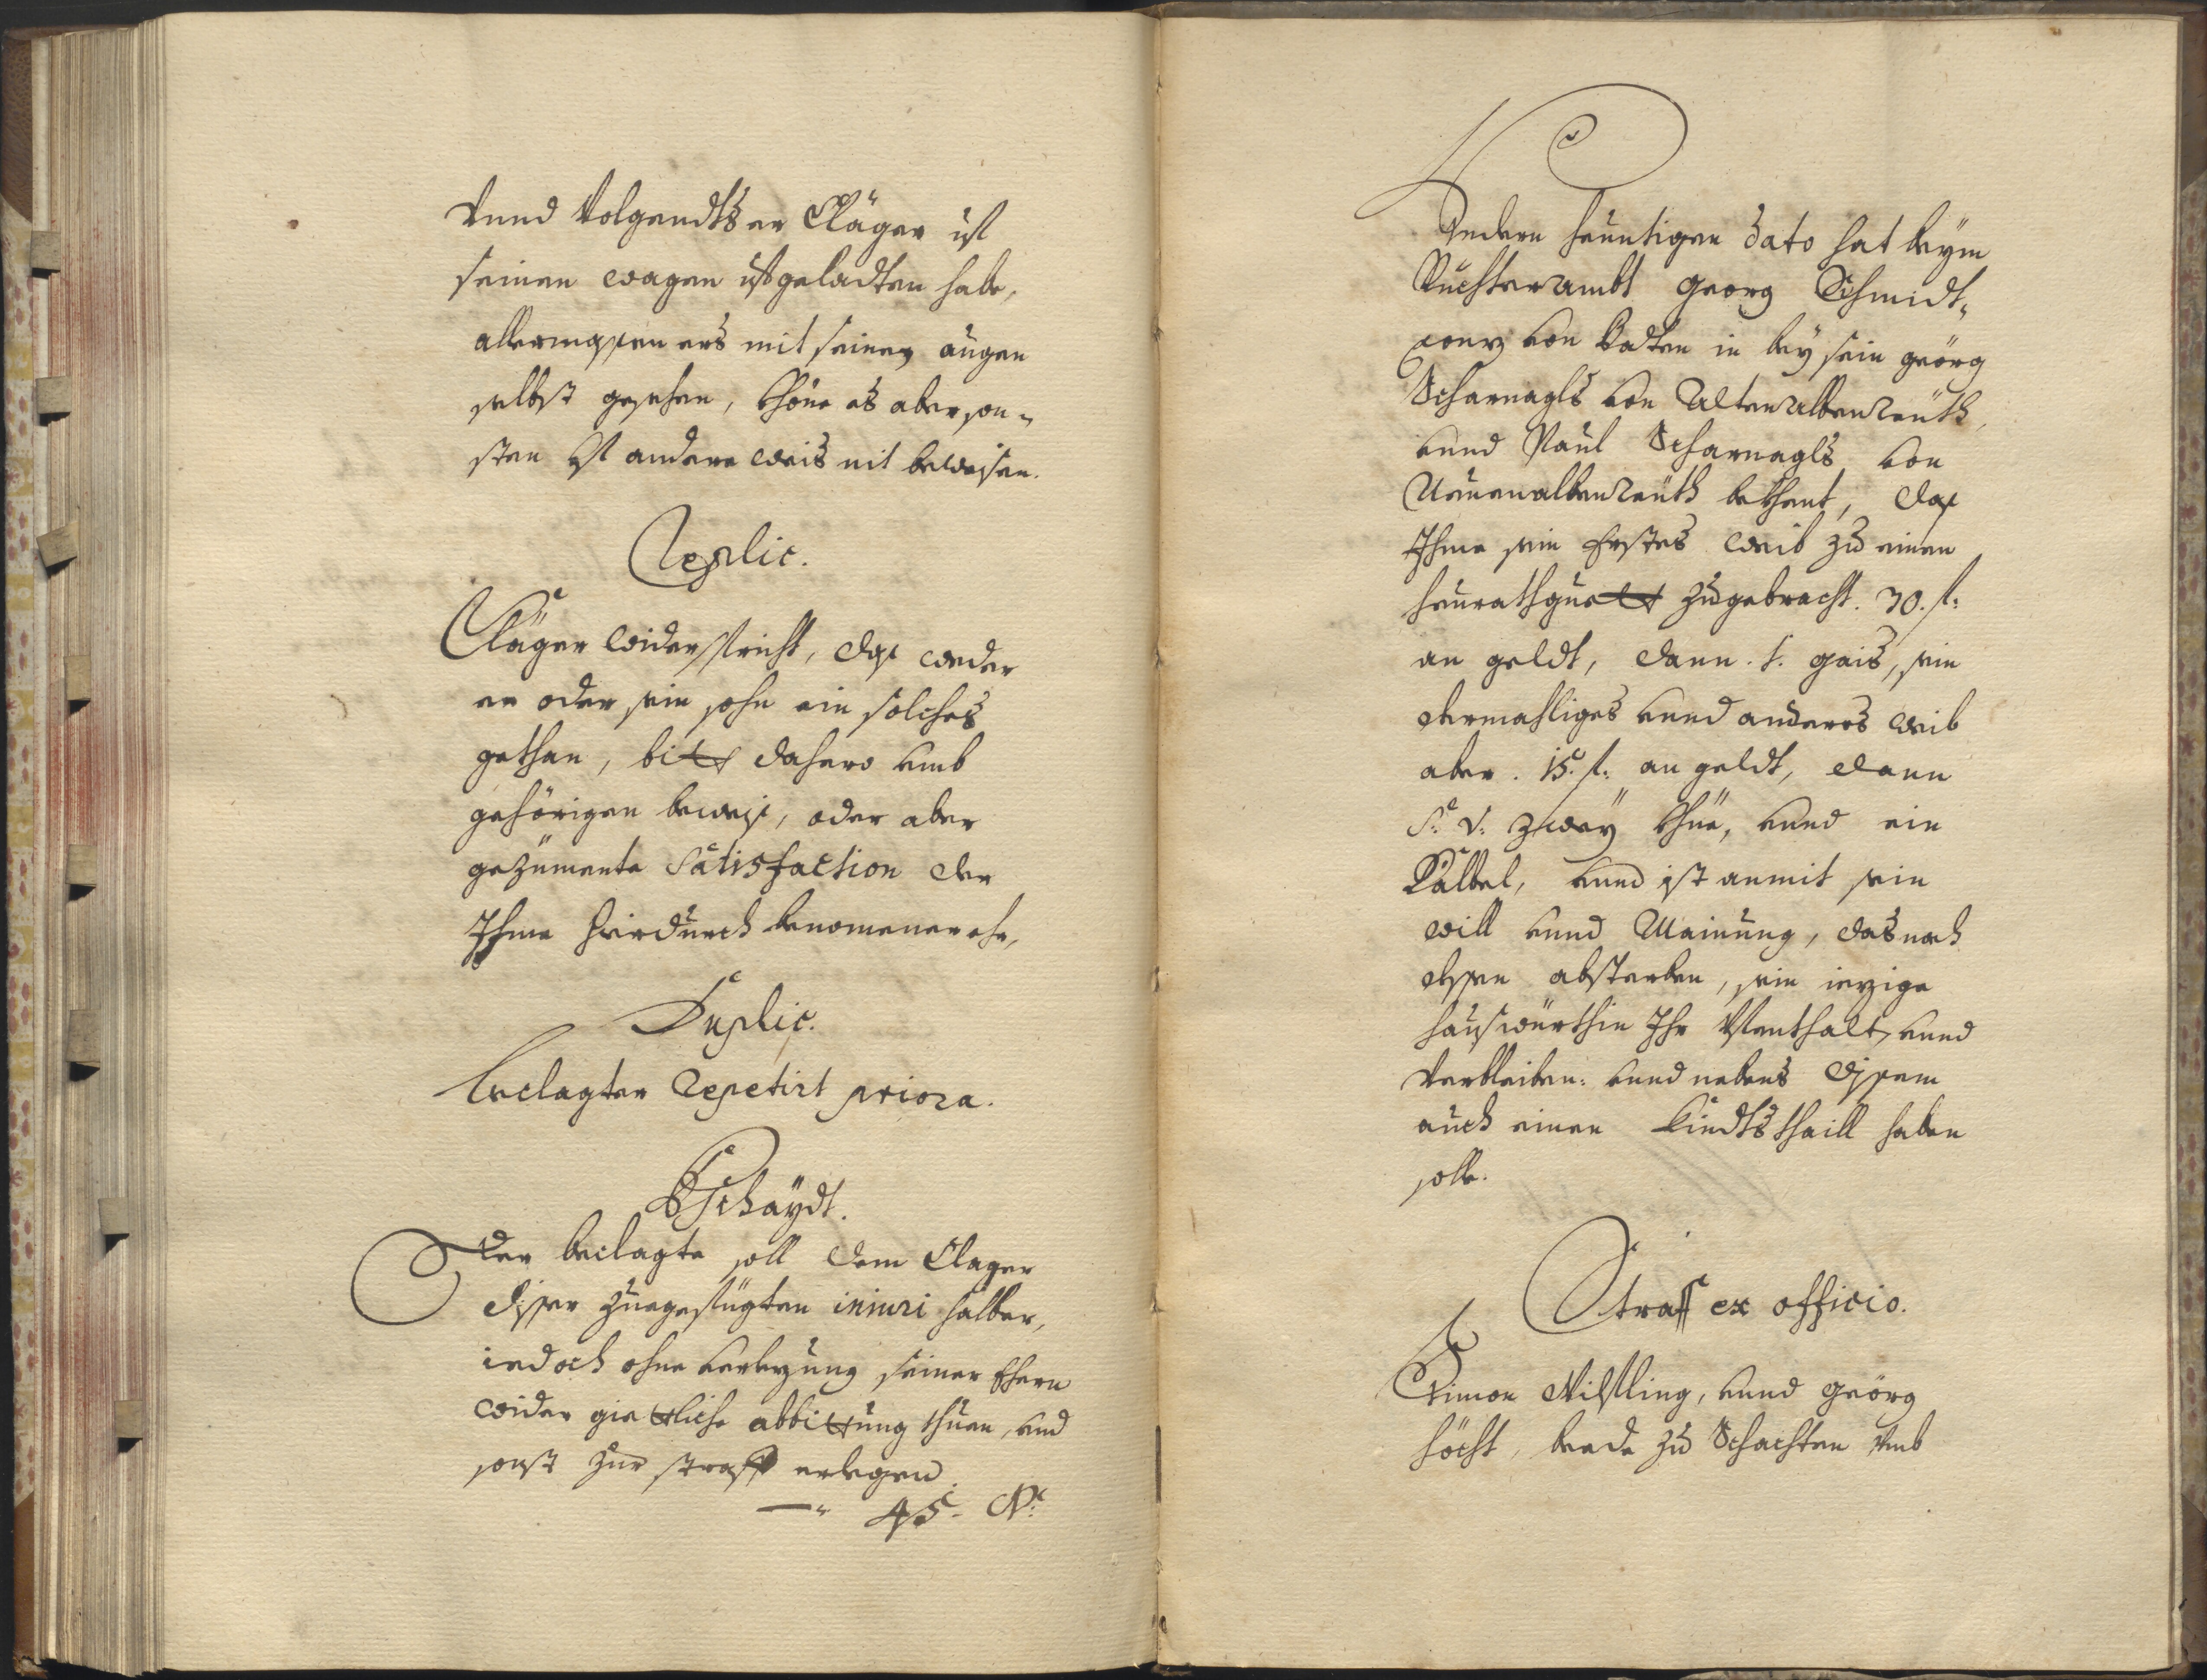 Vnnd Volgendts er Cläger uf
seinen wagen ufgeladten habe,
allermassen ers mit seinen augen
selbst gesehen, khöne es aber son-
sten uf andere weis nit beweisen.
Replic.
Cläger widerspricht, das weder
er oder sein sohn ein solches
gethan, bitt dahero umb
gehörigen beweis, oder aber
gezimente Satisfaction der
Ihme hierdurch benomenen ehr,
Duplic.
beclagter Repetirt priora.
Bschaydt.
Der beclagte soll dem Clager
disser zuegefügten iniuri halber,
iedoch ohne verlezung seiner Ehern
wider giettliche abbittung thuen, und
sonst zur straff erlegen.
45
Under heuntigen dato hat beym
Richterambt Georg Schmidt-
von Badten in beysein geörg
Scharnagls von Altenalbenreuth,
unnd Paul Scharnagls von
Neuenalbenreuth bekhent, das
Ihme sein Erstes weib zu einen
heurathguett zugebracht. 30. fl:
an geldt, dann. 1. gais, sein
dermahliges unnd anders weib
aber. 15. fl: an geldt, dann
S: v: zwey khüe, unnd ein
Kalbel, unnd ist anmit sein
will unnd Mainung, das nach
dessen absterben, sein iezige
hauswürthin Ihr Vfenthalt, unnd
Verbleiben: unnd nebens disem
auch einen Kindtsthaill haben
solle.
Straff ex officio.
Simon unnd Geörg
höcht, beede zu Schachten Umb